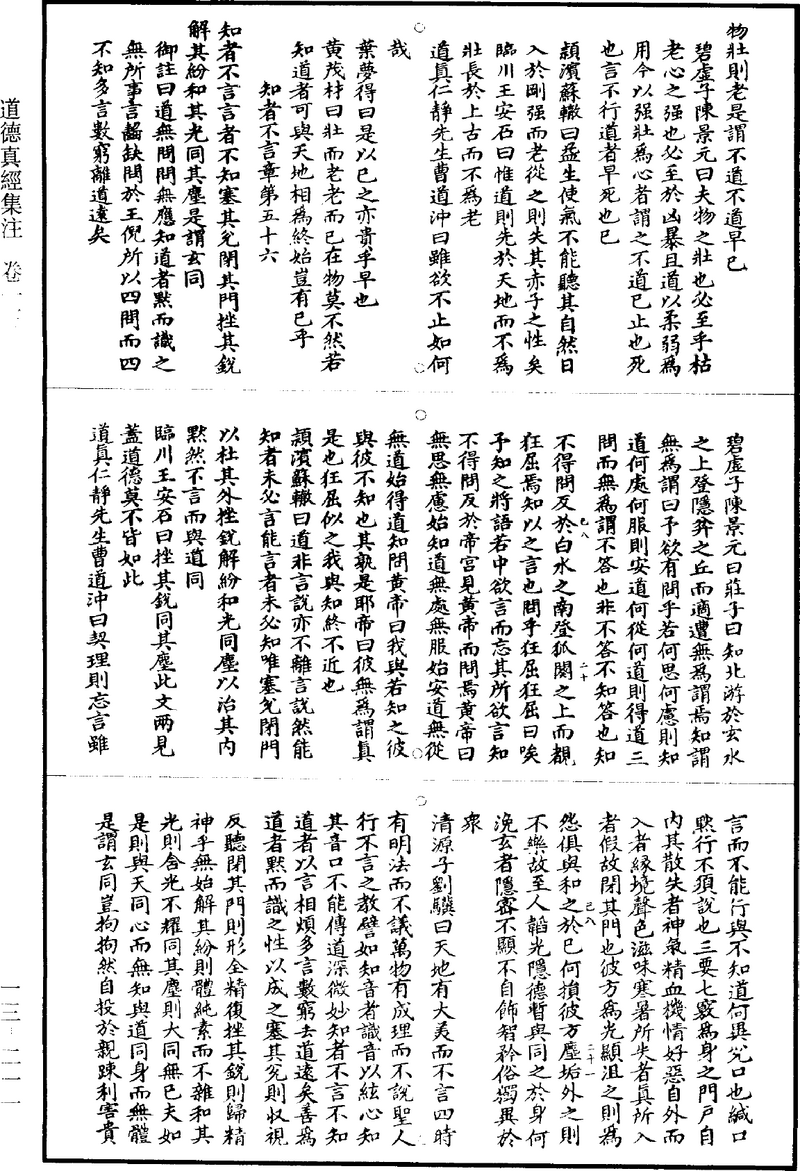 物壯則老是謂不道不道早已
碧虛子陳景元曰夫物之壯也必至乎枯
老心之强也必至於凶暴且道以柔弱爲
用今以强壯爲心者謂之不道已止也死
也言不行道者早死也已
潁濱蘇轍曰益生使氣不能聽其自然日
入於剛强而老從之則失其赤子之性矣
臨川王安石曰惟道則先於天地而不爲
壯長於上古而不爲老
道真仁靜先生曹道沖曰雖欲不止如何
哉
葉夢得曰是以已之亦貴乎早也
黃茂材曰壯而老老而已在物莫不然若
知道者可與天地相爲終始豈有已乎
知者不言章第五十六
知者不言言者不知塞其兌閉其門挫其銳
解其紛和其光同其塵是謂玄同
御註曰道無問問無應知道者默而識之
無所事言齧缺問於王倪所以四問而四
不知多言數窮離道遠矣
碧虛子陳景元曰莊子曰知北游於玄水
之上登隱弅之丘而適遭無爲謂焉知謂
無爲謂曰予欲有問乎若何思何慮則知
道何處何服則安道何從何道則得道三
問而無爲謂不答也非不答不知答也知
不得問反於白水之南登狐闋之上而覩
狂屈焉知以之言也問乎狂屈狂屈曰唉
予知之將語若中欲言而忘其所欲言知
不得問反於帝宮見黃帝而問焉黃帝曰
無思無慮始知道無處無服始安道無從
無道始得道知問黃帝曰我與若知之彼
與彼不知也其孰是耶帝曰彼無爲謂真
是也狂屈似之我與知終不近也
潁濱蘇轍曰道非言說亦不離言說然能
知者未必言能言者未必知唯塞兌閉門
以杜其外挫銳解紛和光同塵以治其內
黙然不言而與道同
臨川王安石曰挫其銳同其塵此文兩見
蓋道德莫不皆如此
道真仁靜先生曹道沖曰契理則忘言雖
言而不能行與不知道何異兌口也緘口
黙行不須說也三要七竅爲身之門戶自
內其散失者神氣精血機情好惡自外而
入者緣境聲色滋味寒暑所失者真所入
者假故閉其門也彼方爲光顯沮之則爲
怨俱與和之於已何損彼方塵垢外之則
不樂故至人韜光隱德暫與同之於身何
浼玄者隱密不顯不自飾智矜俗獨異於
衆
清源子劉驥曰天地有大美而不言四時
有明法而不議萬物有成理而不說聖人
行不言之教譬如知音者識音以絃心知
其音口不能傳道深微妙知者不言不知
道者以言相煩多言數窮去道遠矣善爲
道者黙而識之性以成之塞其兌則收視
反聽閉其門則形全精復挫其銳則歸精
神乎無始解其紛則體純素而不雜和其
光則含光不耀同其塵則大同無已夫如
是則與天同心而無知與道同身而無體
是謂玄同豈拘拘然自投於親踈利害貴
道德真經集注 卷
一三·二一一